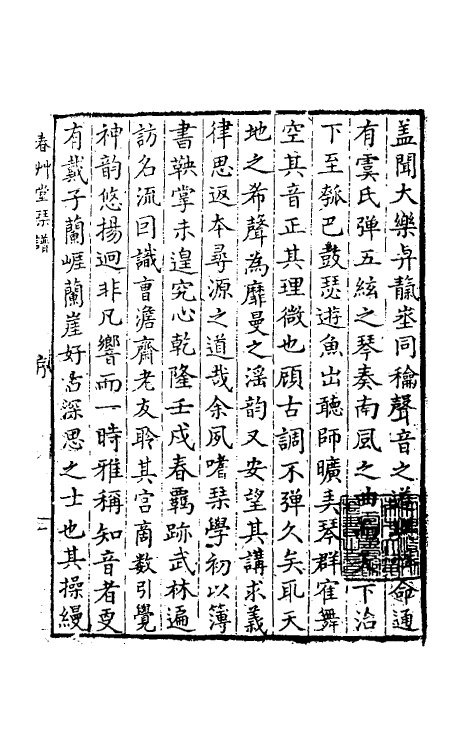 盖聞大樂與龢埊同龢聲音之道與性命通
有虞氏弹五絃之琴奏南風之曲而天下治
下至瓠巴鼓瑟遊魚出聽師曠奏琴群寉舞
空其音正其理微也顧古調不弹久矣㞕天
地之希聲為靡曼之滛韵又安望其講求義
律思返本尋源之道哉余夙嗜琹學初以簿
書鞅掌未遑究心乾隆壬戌春羁跡武林遍
訪名流囙識曺澹齋老友聆其宫商数引覺
神韵悠揚逈非凡響而一時雅稱知音者更
有戴子蘭崕蘭崖好古深思之士也其操縵
春艸堂琹譜
序